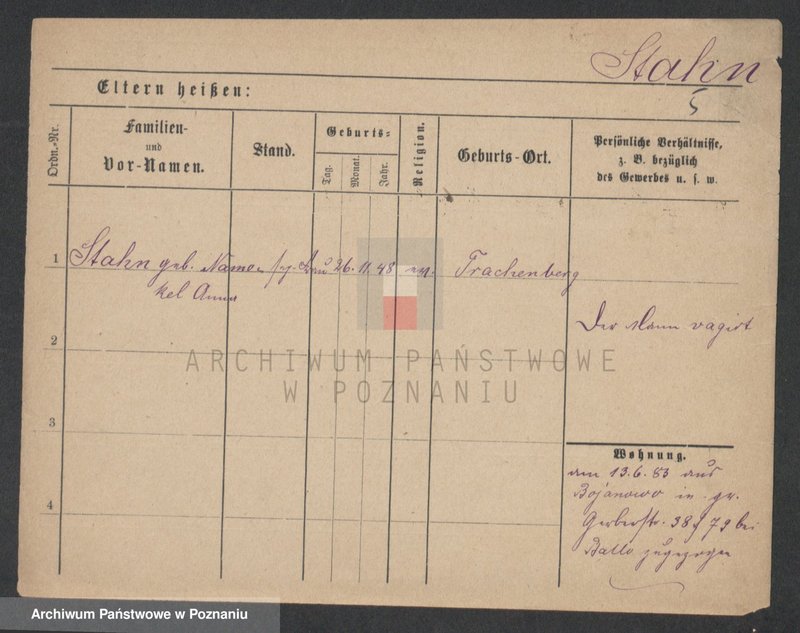 Stahn
5
Eltern heißen:
Ordn.-Nr.
Familien-
und
Vor-Namen.
Stand.
Geburts-
Tag.
Monat.
Jahr.
Religion.
Geburts-Ort.
Persönliche Verhältnisse,
z. B. bezüglich
des Gewerbes u. s. w.
1 Stahn geb. 26. 11. 48 ev. Trachenberg
kel Anna
Der Mann vagirt
2
ARCHIWUM PAŃSTWOWE
W POZNANIU
3
Wohnung.
am 13.6.83 aus
Bojanowo in gr.
4
Gerberstr. 38 bei
zugezogen
Archiwum Państwowe w Poznaniu